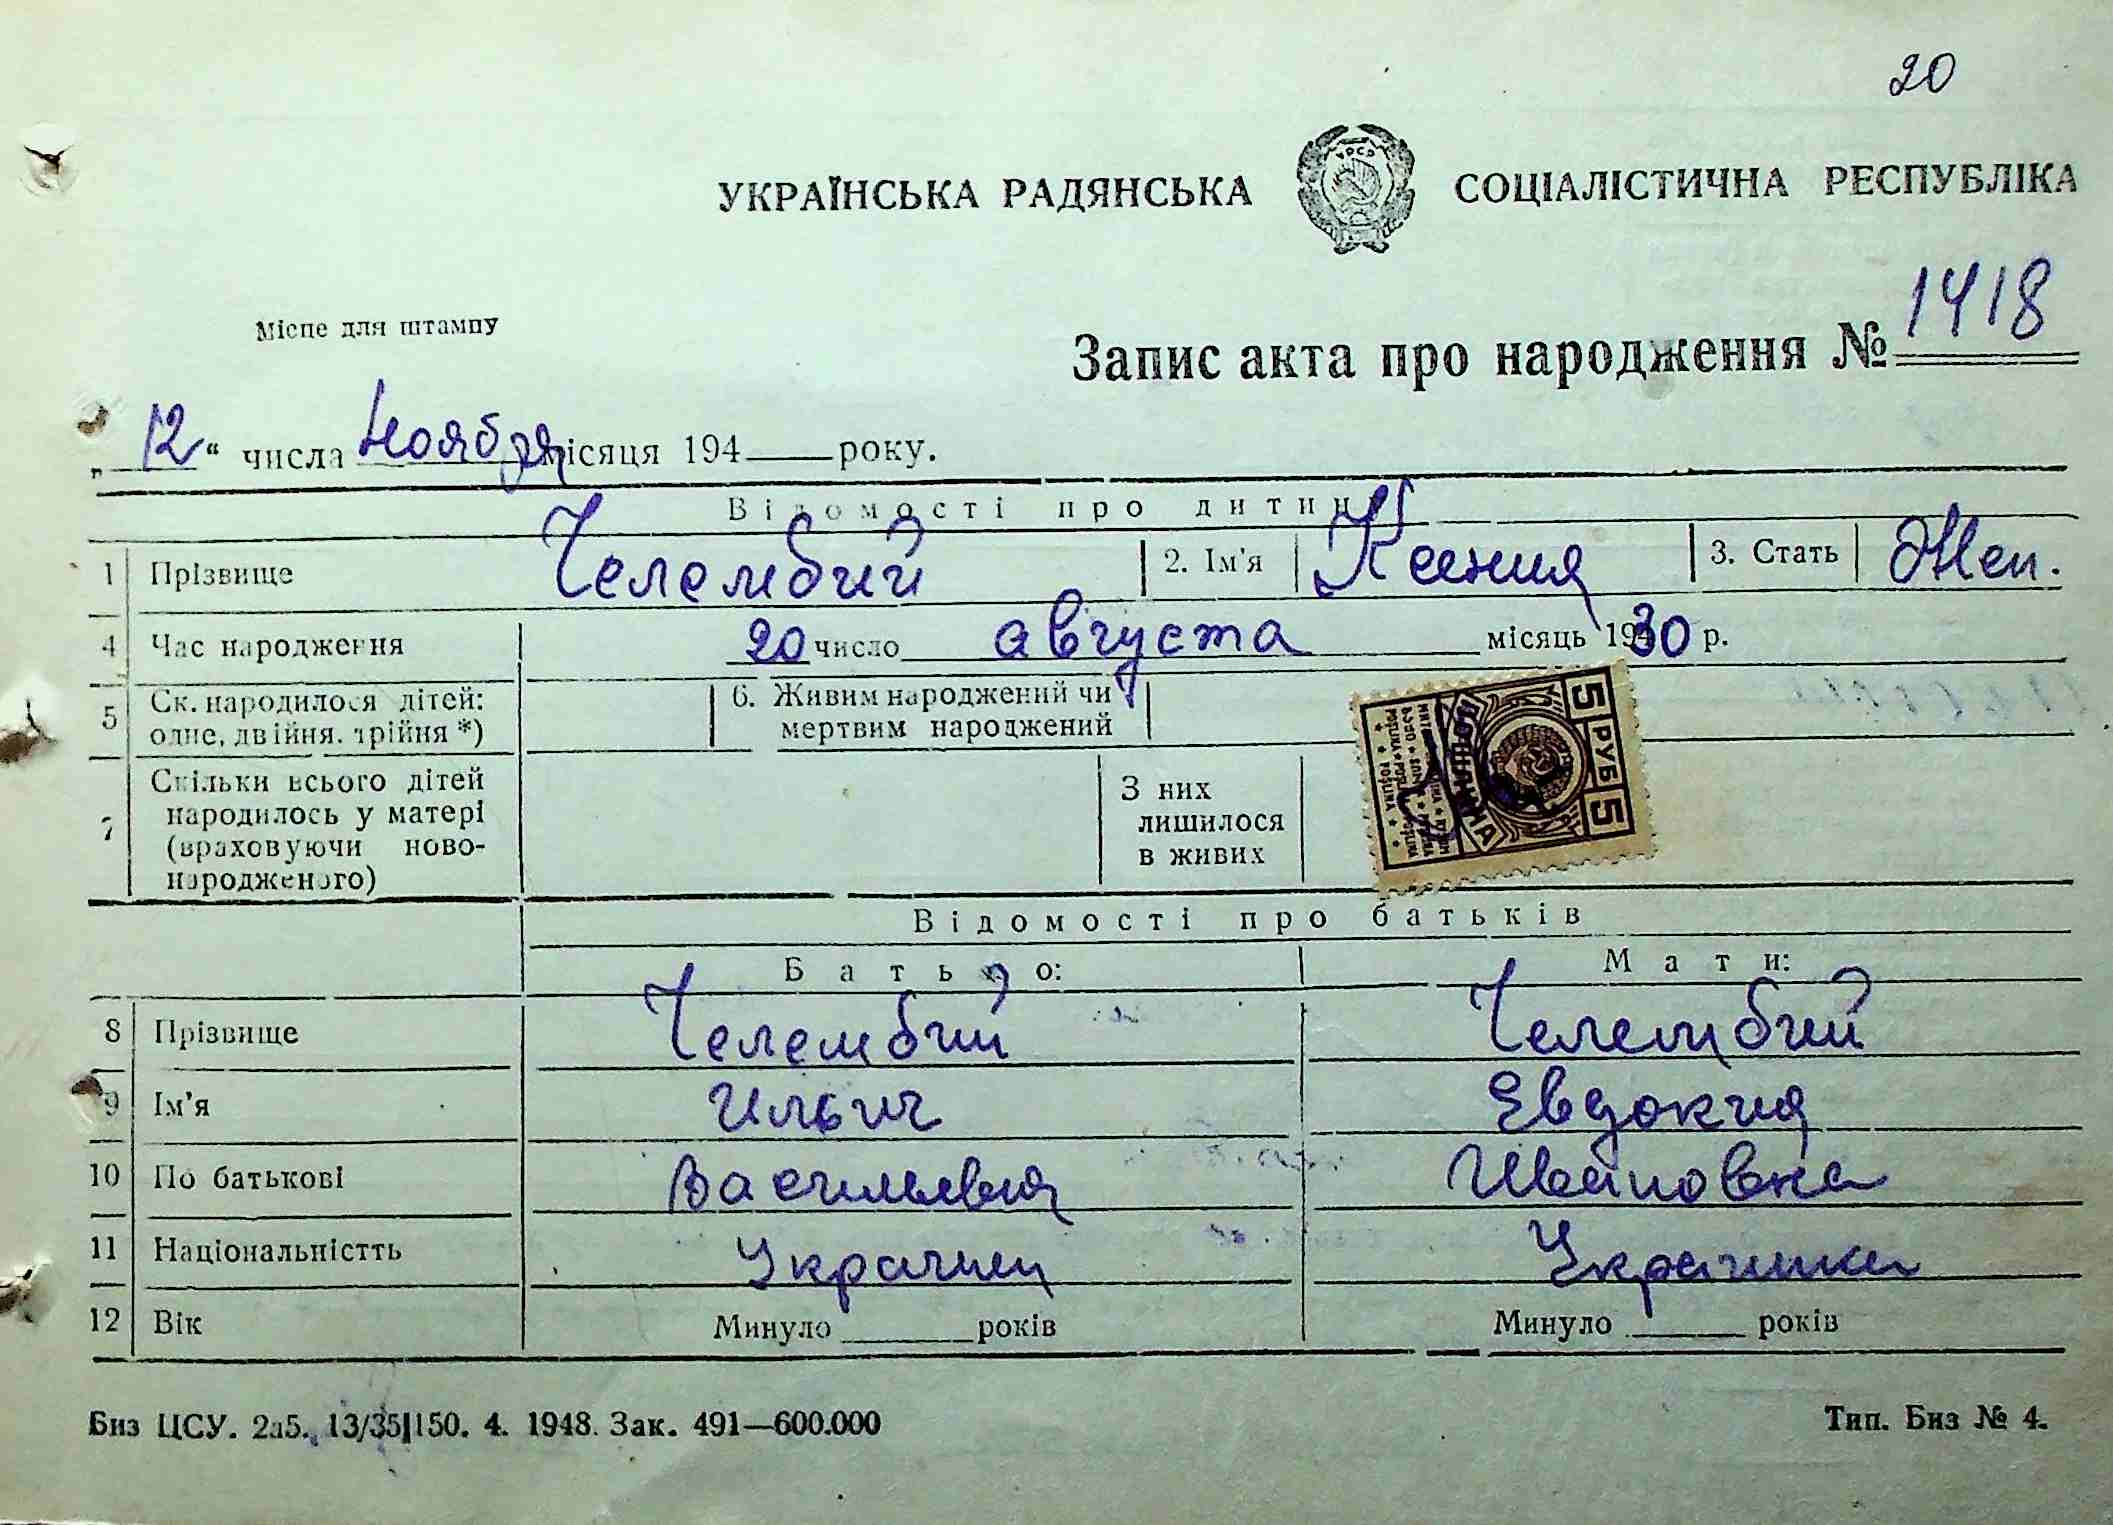 20
УКРАЇНСЬКА РАДЯНСЬКА СОЦІАЛІСТИЧНА РЕСПУБЛІКА
УРСР
Місце для штампу
Запис акта про народження № 1418
„ 12 “ числа Ноября місяця 194 року.
Відомості про дитину
1 Прізвище Челембий 2. Ім'я Ксения 3. Стать Жен.
4 Час народження 20 число августа місяць 1930 р.
5 Ск. народилося дітей: одне, двійня, трійня *) 6. Живим народжений чи мертвим народжений
7 Скільки всього дітей народилось у матері (враховуючи новонародженого) З них лишилося в живих
5 РУБ 5
Відомості про батьків
Батько: Мати:
8 Прізвище Челембий Челембий
9 Ім'я Ильич Евдокия
10 По батькові Васильевич Ивановна
11 Національністть Украинец Украинка
12 Вік Минуло років Минуло років
Биз ЦСУ. 2а5. 13/35|150. 4. 1948. Зак. 491—600.000 Тип. Биз № 4.